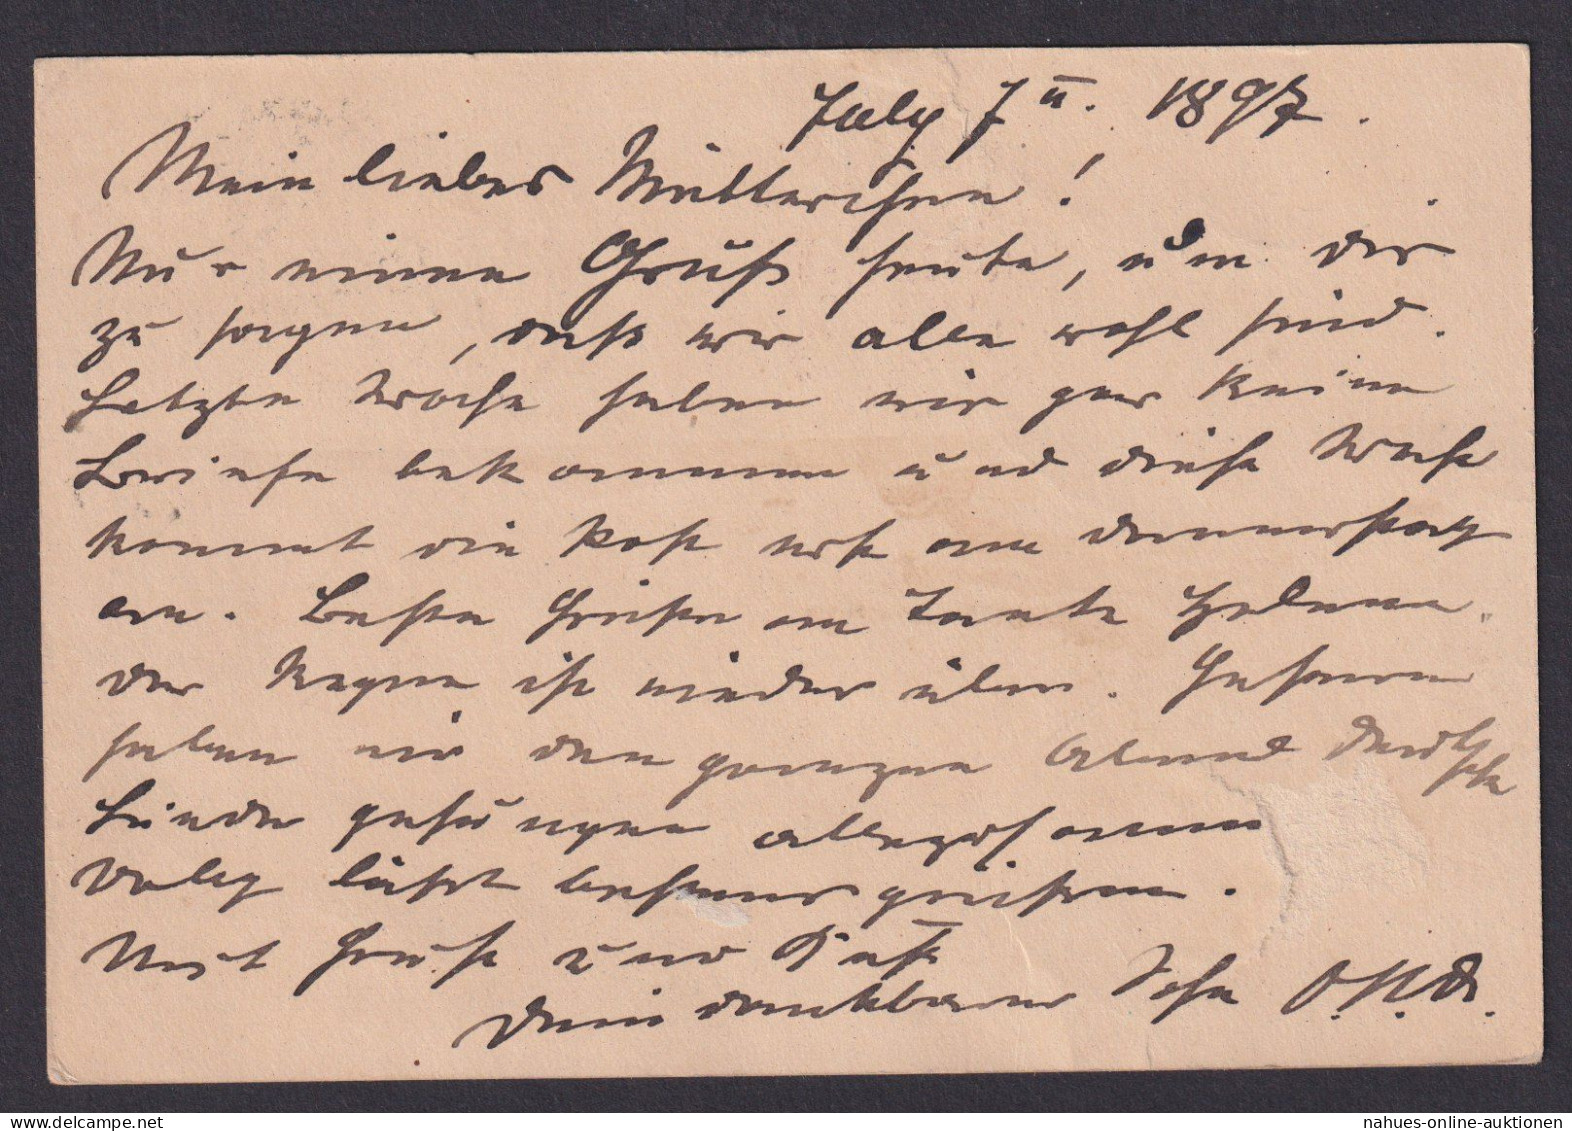 July 7 II. 1897.
Mein liebes Mütterchen!
Nur einen Gruß heute, um dir
zu sagen, daß wir alle wohl sind.
Letzte Woche haben wir gar keine
Briefe bekommen und diese Woche
kommt die Post erst am Donnerstag
an. Beste Grüße an Tante Helene.
Der Regen ist wieder über. Gestern
haben wir den ganzen Abend deutsche
Lieder gesungen
läßt bestens grüßen.
Mit Gruß und Kuß
Dein dankbarer Sohn
nahues-online-auktionen